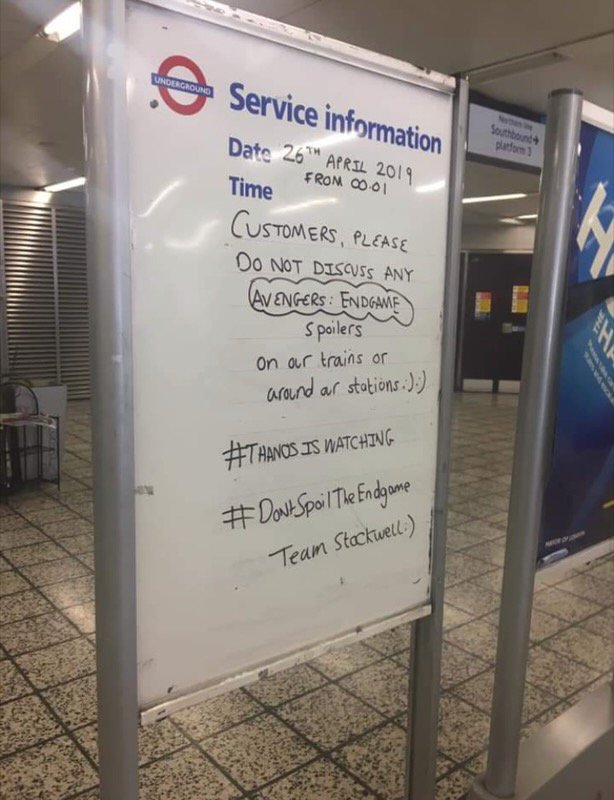 UNDERGROUND
Service information
Date 26TH APRIL 2019
Time FROM 00:01
CUSTOMERS, PLEASE
DO NOT DISCUSS ANY
AVENGERS: ENDGAME
Spoilers
on our trains or
around our stations :) :)
#THANOS IS WATCHING
#DontSpoilTheEndgame
Team Stockwell :)
Northern line
Southbound →
platform 3
MAYOR OF LONDON